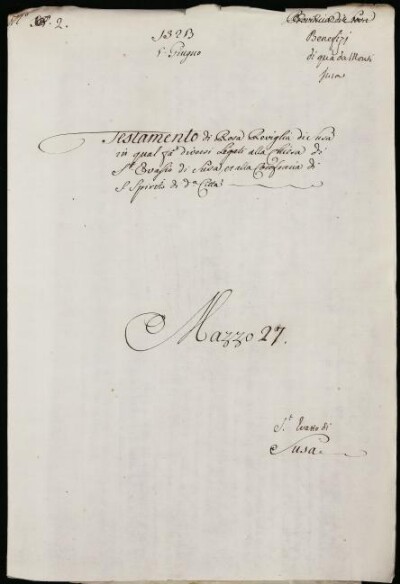 N.º 2.
1321
1.º Giugno
Benefizj
di qua da Monti
Susa
Testamento di Rosa Roviglia di
in qual fà diversi Legati alla Chiesa di
S.t Evasio di Susa, et alla Confraria di
S. Spirito di d.ª Città
Mazzo 27.
S.t Evasio di
Susa